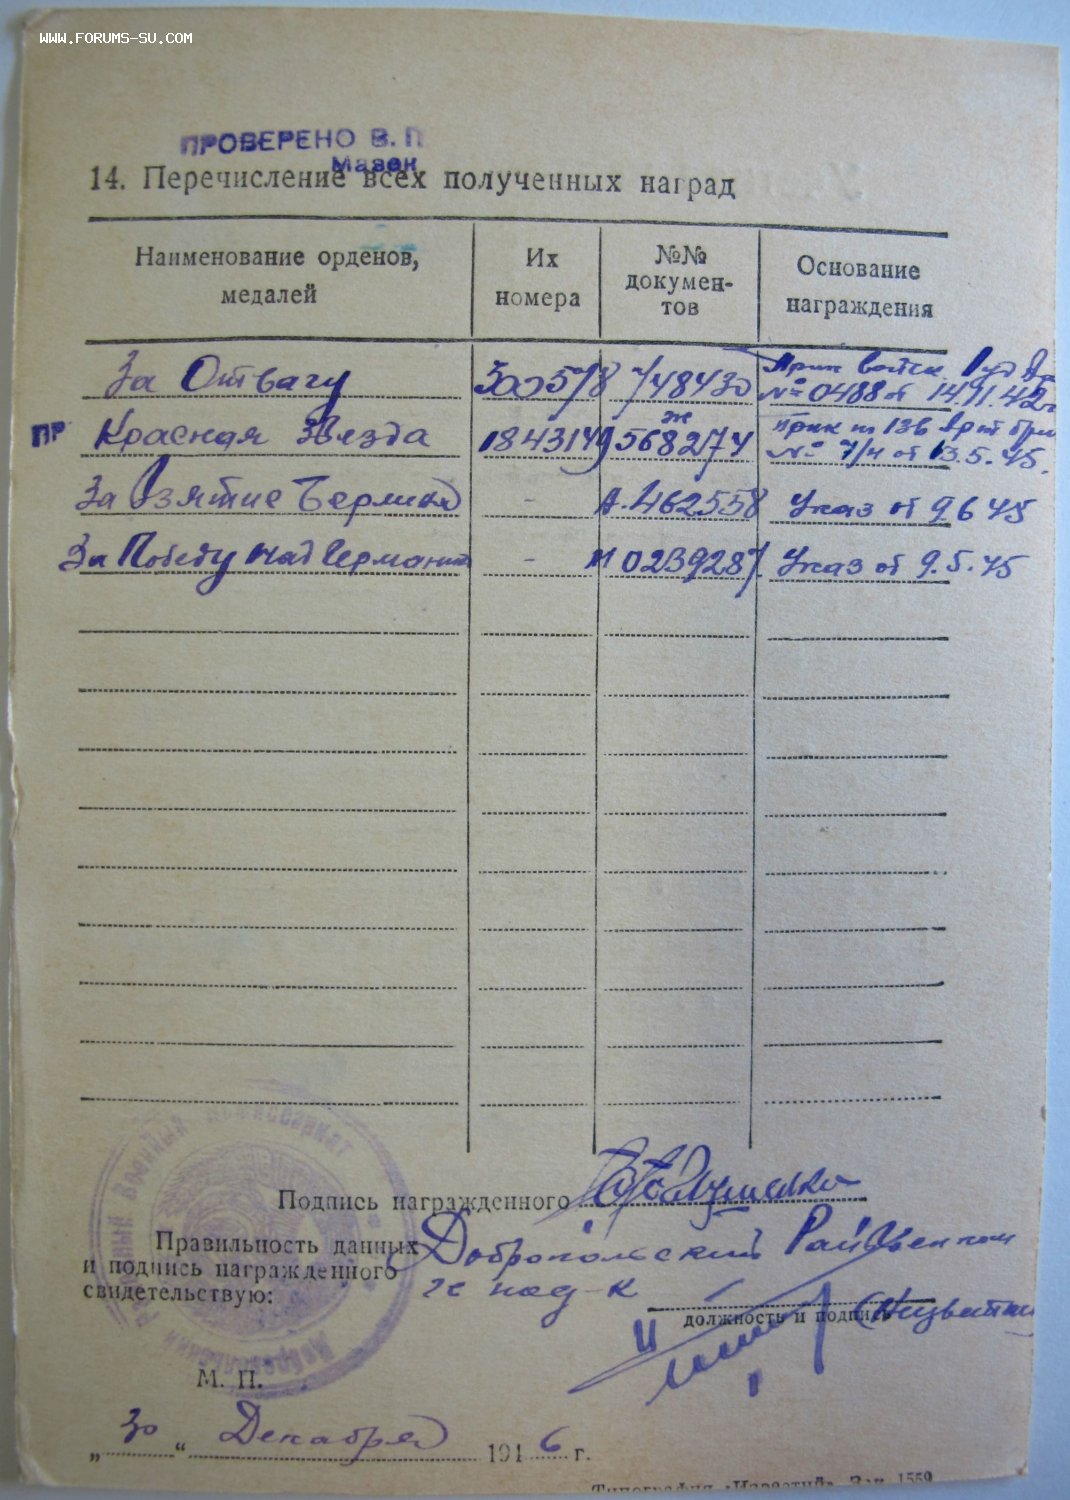 WWW.FORUMS-SU.COM
ПРОВЕРЕНО В. П
Мазок
14. Перечисление всех полученных наград
Наименование орденов, медалей
Их номера
№№ документов
Основание награждения
За Отвагу 300578 748430 Прик войск
№ 0488 от 14.11.42г
ПР Красная Звезда 1843149 ж 568274 Прик по 136 Арт бр
№ 7/н от 13.5.45.
За Взятие Берлина - А.462558 Указ от 9 6 45
За Победу над Германией - М 0239287 Указ от 9.5.45
Подпись награжденного
Правильность данных
и подпись награжденного
свидетельствую:
Добропольский Райвоенком
п/п
должность и подпись
Районный Военный Комиссариат
М. П.
„ 30 “ Декабря 194 6 г.
Типография «Известий» Зак. 1559